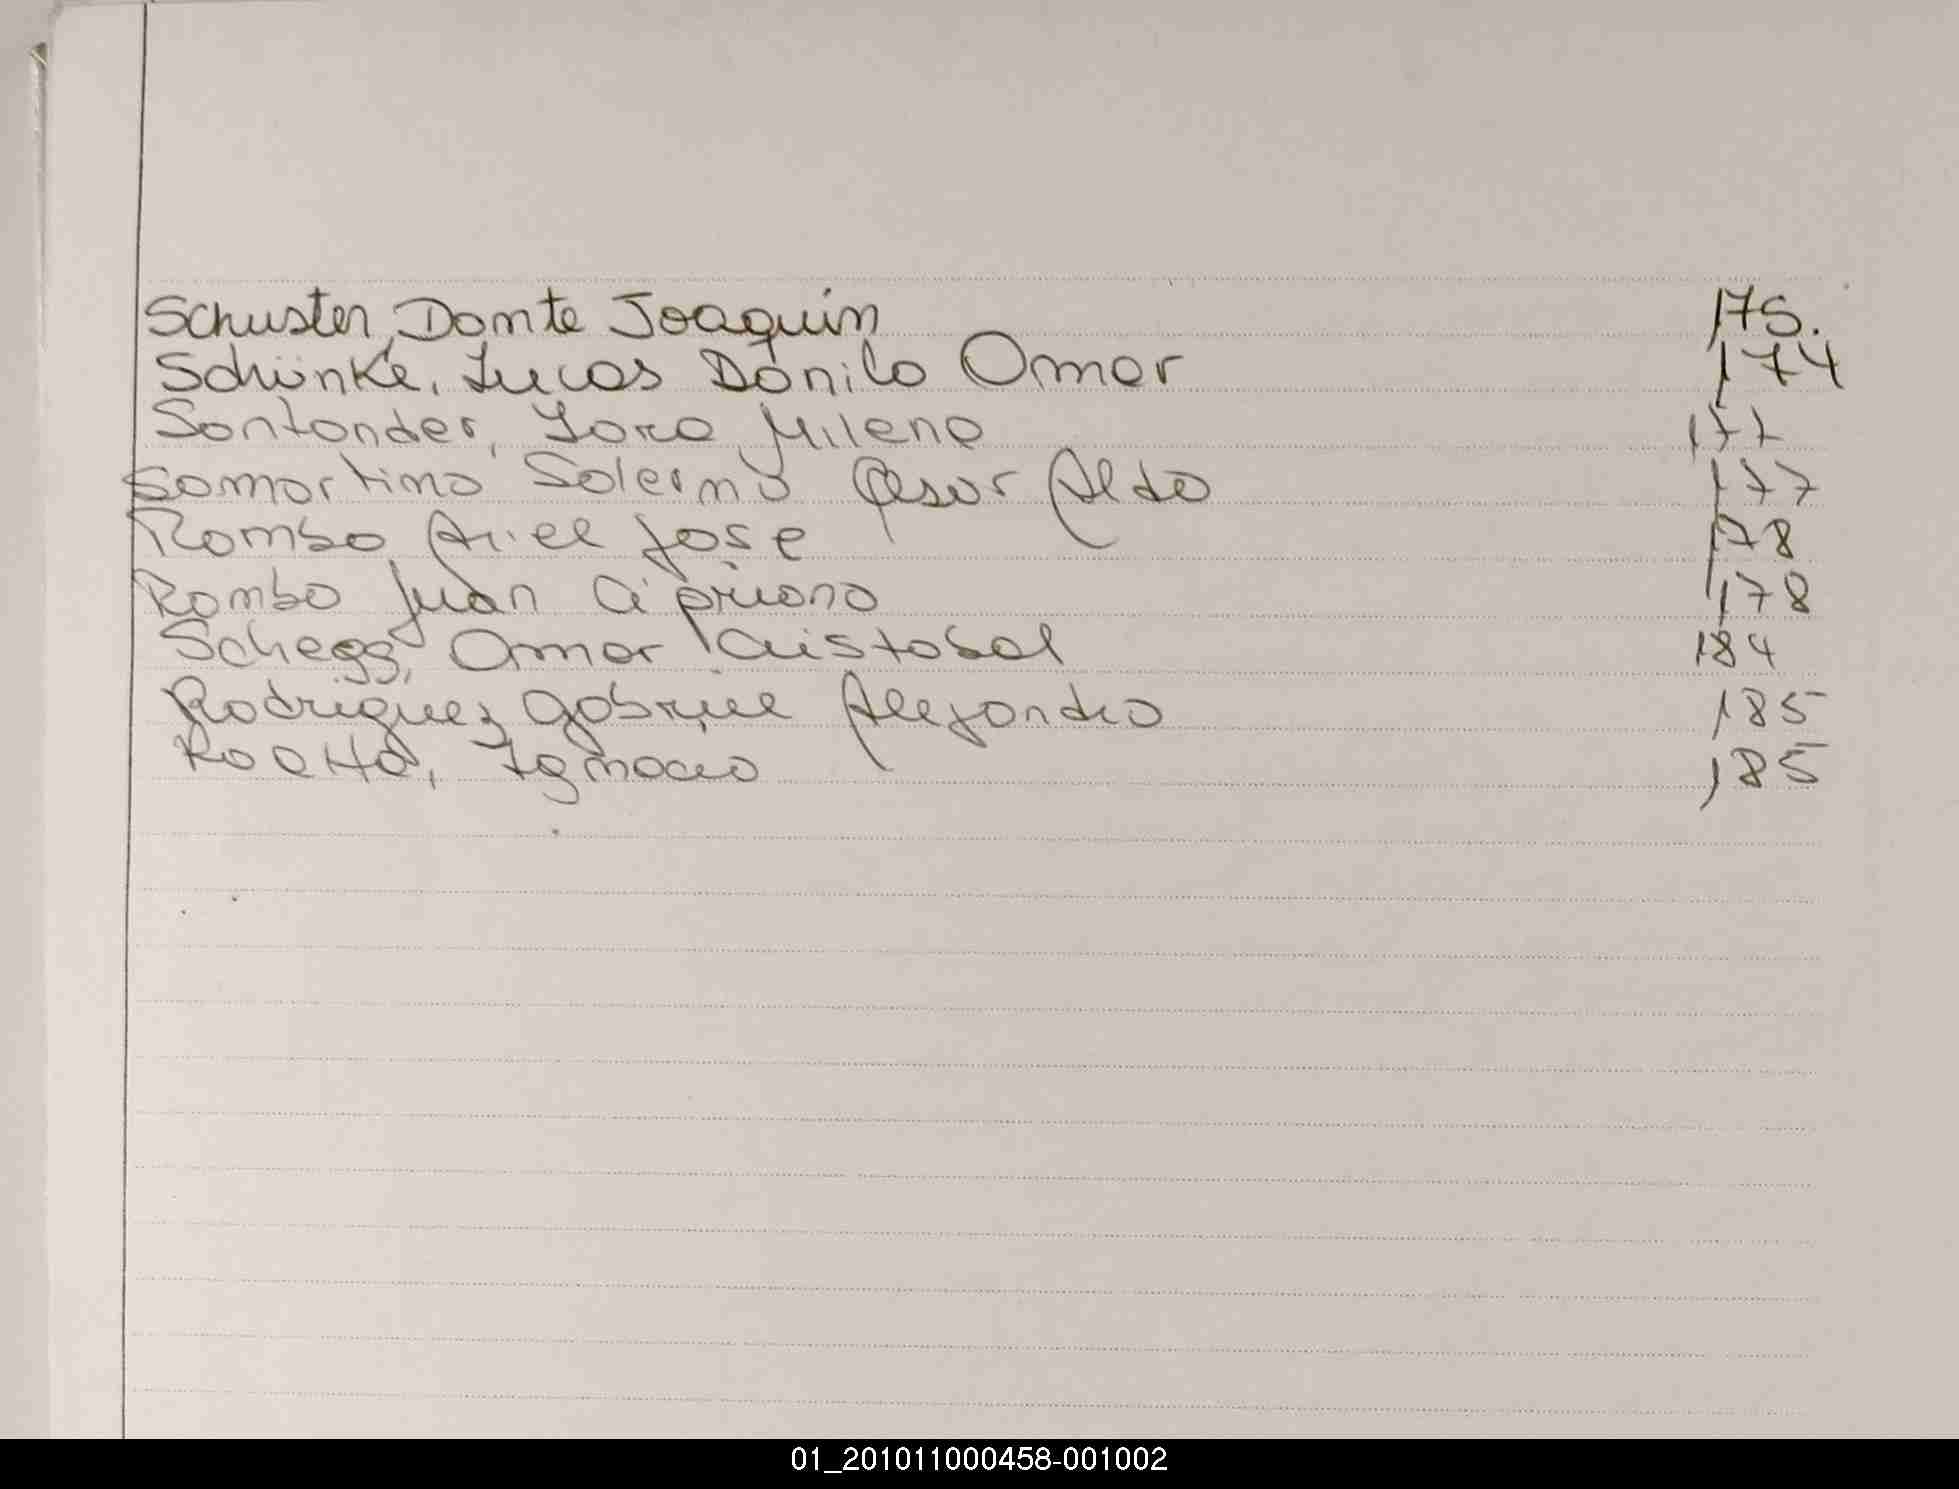 Schuster, Dante Joaquín 175.
Schünke, Lucas Danilo Omar 174
Santander, Lara Milena 177
Samartino Salerno Cesar Aldo 177
Rombo Ariel Jose 178
Rombo Juan Cipriano 178
Schegg, Omar Cristobal 184
Rodriguez Gabriel Alejandro 185
Ignacio 185
01_201011000458-001002